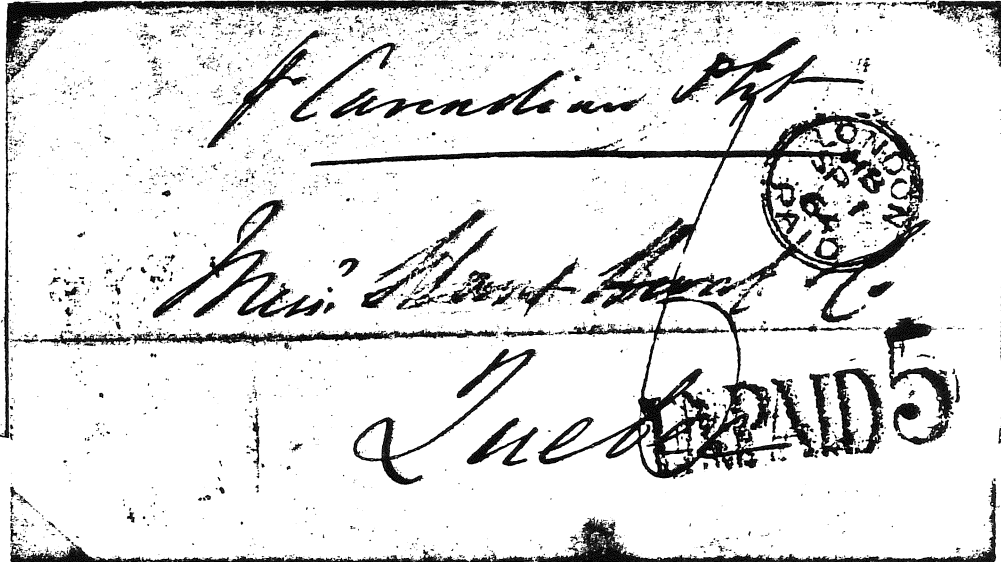 pr Canadian Pkt
LONDON
HB
SP 1
64
PAID
Messrs & Co.
Quebec
PAID 5